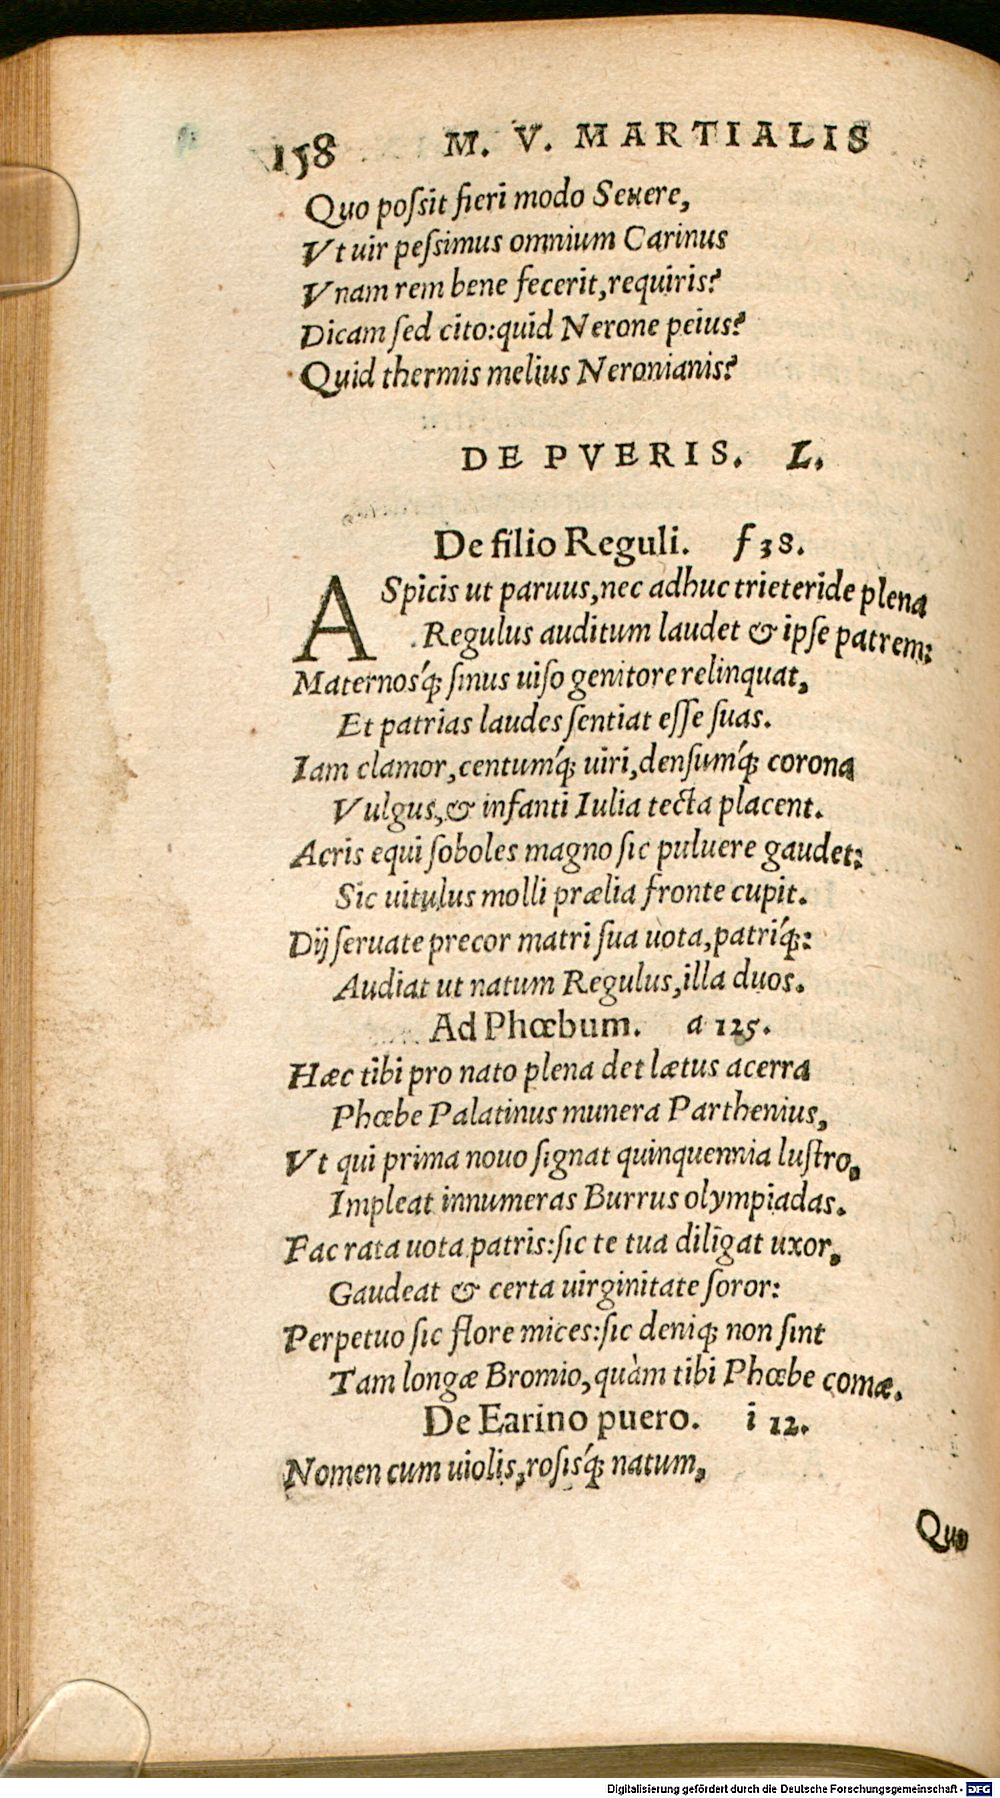 158 M. V. MARTIALIS
Quo poſsit fieri modo Seuere,
Vt uir peſsimus omnium Carinus
Vnam rem bene fecerit, requiris?
Dicam ſed cito: quid Nerone peius?
Quid thermis melius Neronianis?
DE PVERIS. L.
De filio Reguli. f 38.
ASpicis ut paruus, nec adhuc trieteride plena
Regulus auditum laudet & ipſe patrem:
Maternosq́; ſinus uiſo genitore relinquat,
Et patrias laudes ſentiat eſſe ſuas.
Iam clamor, centumq́; uiri, denſumq́; corona
Vulgus, & infanti Iulia tecta placent.
Acris equi ſoboles magno ſic puluere gaudet:
Sic uitulus molli prælia fronte cupit.
Dij ſeruate precor matri ſua uota, patriq́;:
Audiat ut natum Regulus, illa duos.
Ad Phœbum. a 125.
Hæc tibi pro nato plena det lætus acerra
Phœbe Palatinus munera Parthenius,
Vt qui prima nouo ſignat quinquennia luſtro,
Impleat innumeras Burrus olympiadas.
Fac rata uota patris: ſic te tua diligat uxor,
Gaudeat & certa uirginitate ſoror:
Perpetuo ſic flore mices: ſic deniq; non ſint
Tam longæ Bromio, quàm tibi Phœbe comæ.
De Earino puero. i 12.
Nomen cum uiolis, roſisq́; natum,
Quo
Digitalisierung gefördert durch die Deutsche Forschungsgemeinschaft - DFG